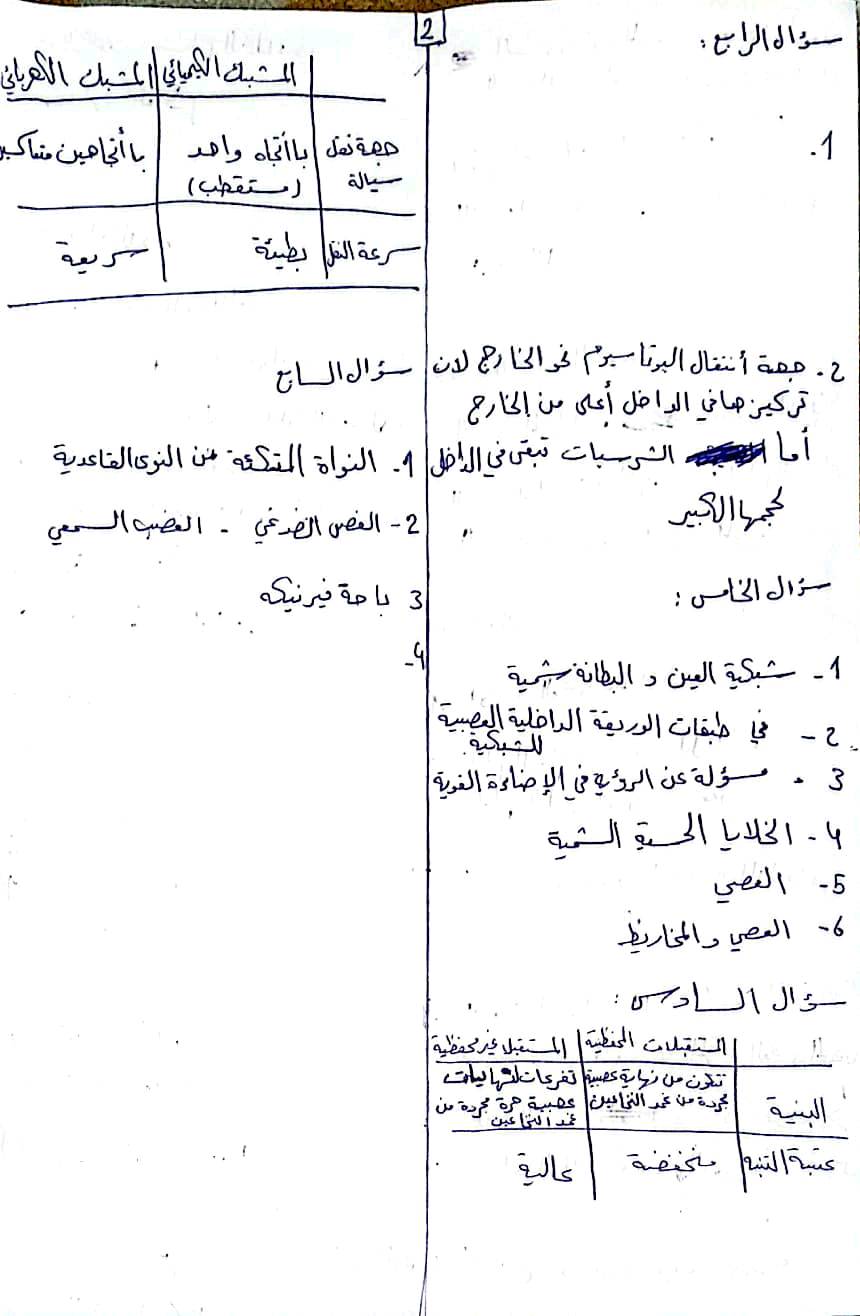 2
سؤال الرابع:
1.
2. جهة أنتقال البوتاسيوم نحو الخارج لان
تركيزها في الداخل أعلى من الخارج
أما الشرسبات تبقى في الداخل
لحجمها الكبير
سؤال الخامس:
1- شبكية العين و البطانة شمية
2- في طبقات الوريقة الداخلية العصبية
للشبكية.
3. مسؤلة عن الرؤي في الإضاءة القوية
4- الخلايا الحسية الشمية
5- العصي
6- العصي والمخاريط
سؤال السادس:
المستقبلات المحفظية | المستقبلا غير محفظية
البنية | تتكون من نهاية عصبية مجردة من غمد النخاعين | تفرعات لنهايات عصبية حرة مجردة من غمد النخاعين
عتبة التنبه | منخفضة | عالية
المشبك الكيميائي | المشبك الكهربائي
جهة نقل سيالة | باأتجاه واحد (مستقطب) | باأتجاهين
سرعة النقل | بطيئة | سريعة
سؤال السابع
1. النواة المتكئة من النوى القاعدية
2- الفص الصدغي - العصب السمعي
3 باحة فيرنيكه
4-